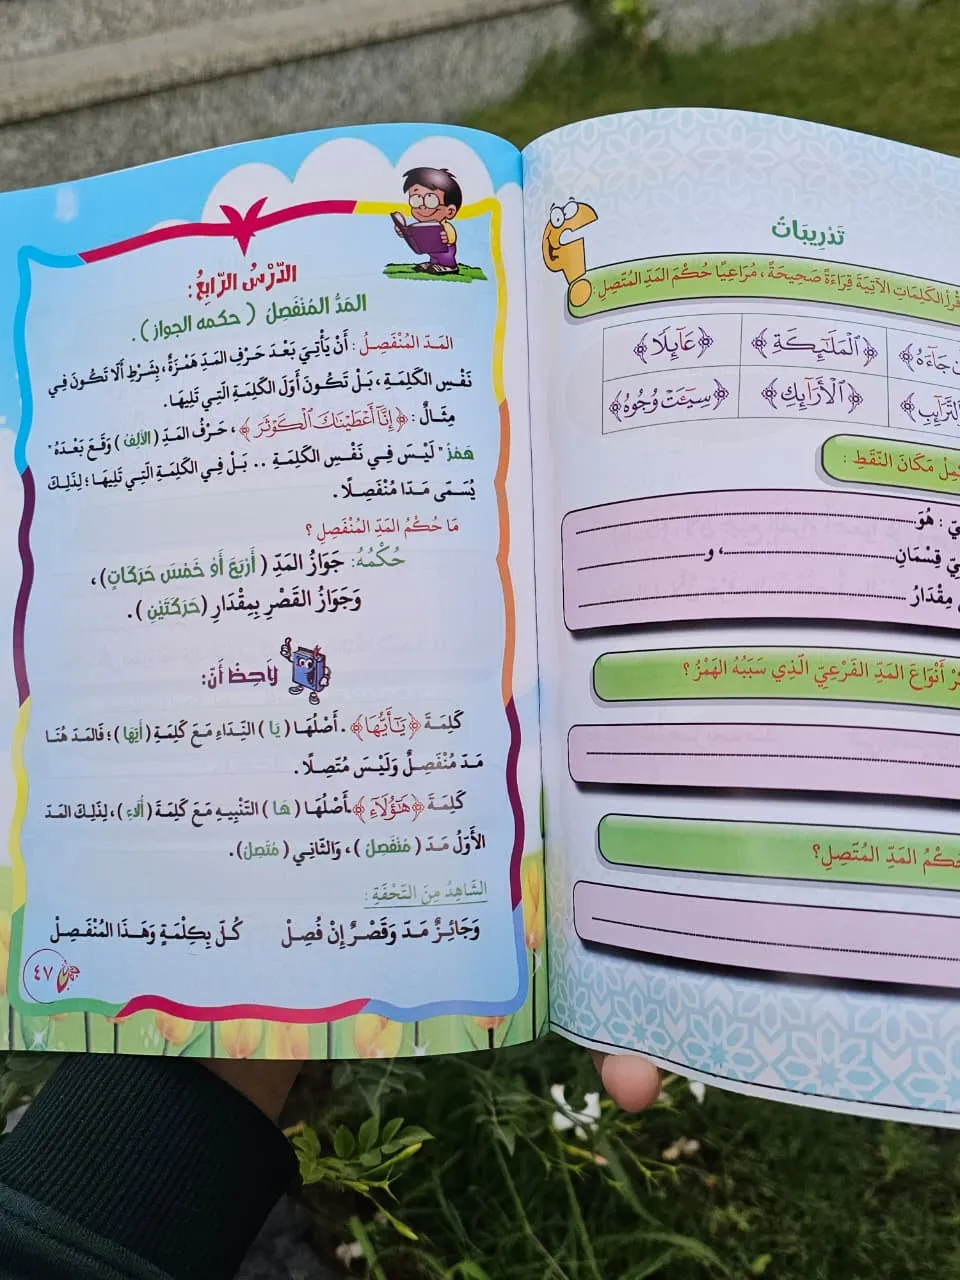 تَدْرِيبَاتٌ
الكَلِمَاتِ الآتِيَةَ قِرَاءَةً صَحِيحَةً، مُرَاعِيًا حُكْمَ المَدِّ المُتَّصِلِ:
جَآءَهُ ﴿ٱلْمَلَٰٓئِكَةِ﴾ ﴿عَآئِلًا﴾
﴿ٱلْأَرَآئِكِ﴾ ﴿سِيٓـَٔتْ وُجُوهُ﴾
مَكَانَ النُّقَطِ :
: هُوَ
قِسْمَانِ ، و
مِقْدَارُ
أَنْوَاعَ المَدِّ الفَرْعِيِّ الَّذِي سَبَبُهُ الهَمْزُ؟
حُكْمُ المَدِّ المُتَّصِلِ؟
الدَّرْسُ الرَّابِعُ:
المَدُّ المُنْفَصِلُ ( حكمه الجواز ).
المَدُّ المُنْفَصِلُ : أَنْ يَأْتِيَ بَعْدَ حَرْفِ المَدِّ هَمْزَةٌ، بِشَرْطِ أَلَّا تَكُونَ فِي
نَفْسِ الكَلِمَةِ ، بَلْ تَكُونَ أَوَّلَ الكَلِمَةِ الَّتِي تَلِيهَا.
مِثَالٌ : ﴿إِنَّآ أَعْطَيْنَٰكَ ٱلْكَوْثَرَ﴾ ، حَرْفُ المَدِّ ( الأَلِفُ ) وَقَعَ بَعْدَهُ "
هَمْزٌ " لَيْسَ فِي نَفْسِ الكَلِمَةِ .. بَلْ فِي الكَلِمَةِ الَّتِي تَلِيهَا ؛ لِذَلِكَ
يُسَمَّى مَدًّا مُنْفَصِلًا .
مَا حُكْمُ المَدِّ المُنْفَصِلِ ؟
حُكْمُهُ: جَوَازُ المَدِّ ( أَرْبَعَ أَوْ خَمْسَ حَرَكَاتٍ ) ،
وَجَوَازُ القَصْرِ بِمِقْدَارِ ( حَرَكَتَيْنِ ) .
لَاحِظْ أَنَّ:
كَلِمَةَ ﴿يَٰٓأَيُّهَا﴾ . أَصْلُهَا ( يَا ) النِّدَاءِ مَعَ كَلِمَةِ ( أَيُّهَا ) ؛ فَالمَدُّ هُنَا
مَدٌّ مُنْفَصِلٌ وَلَيْسَ مُتَّصِلًا .
كَلِمَةَ ﴿هَٰٓؤُلَآءِ﴾ .أَصْلُهَا ( هَا ) التَّنْبِيهِ مَعَ كَلِمَةِ ( أُلَاءِ ) ، لِذَلِكَ المَدُّ
الأَوَّلُ مَدٌّ ( مُنْفَصِلٌ ) ، وَالثَّانِي ( مُتَّصِلٌ ) .
الشَّاهِدُ مِنَ التُّحْفَةِ :
وَجَائِزٌ مَدٌّ وَقَصْرٌ إِنْ فُصِلْ كُلٌّ بِكِلْمَةٍ وَهَذَا المُنْفَصِلْ
٤٧